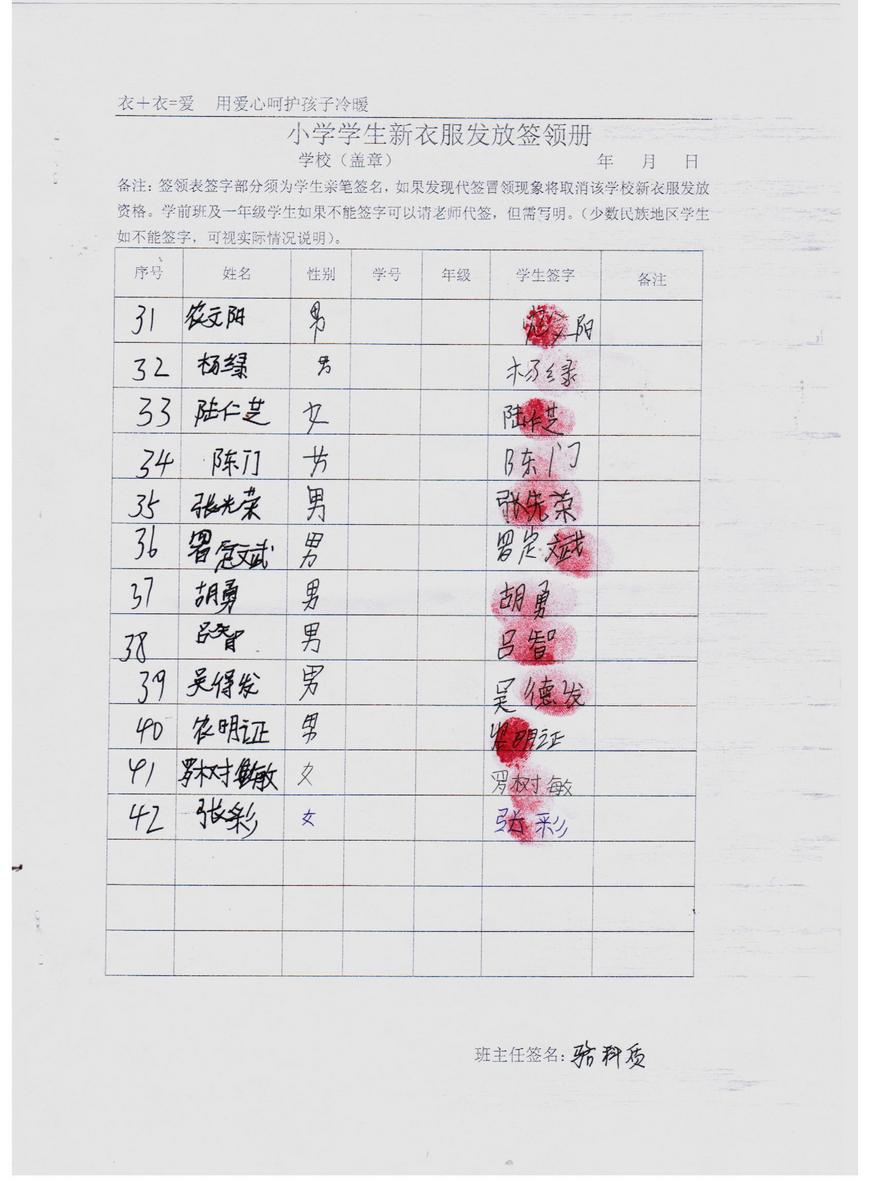 衣+衣=爱 用爱心呵护孩子冷暖
小学学生新衣服发放签领册
学校（盖章） 年 月 日
备注：签领表签字部分须为学生亲笔签名，如果发现代签冒领现象将取消该学校新衣服发放
资格。学前班及一年级学生如果不能签字可以请老师代签，但需写明。（少数民族地区学生
如不能签字，可视实际情况说明）。
序号 姓名 性别 学号 年级 学生签字 备注
31 农文阳 男 农文阳
32 杨绿 男 杨绿
33 陆仁芝 女 陆仁芝
34 陈门 女 陈门
35 张光荣 男 张先荣
36 罗定斌 男 罗定斌
37 胡勇 男 胡勇
38 吕智 男 吕智
39 吴得发 男 吴德发
40 农明证 男 农明证
41 罗树敏 女 罗树敏
42 张彩 女 张彩
班主任签名：骆科质